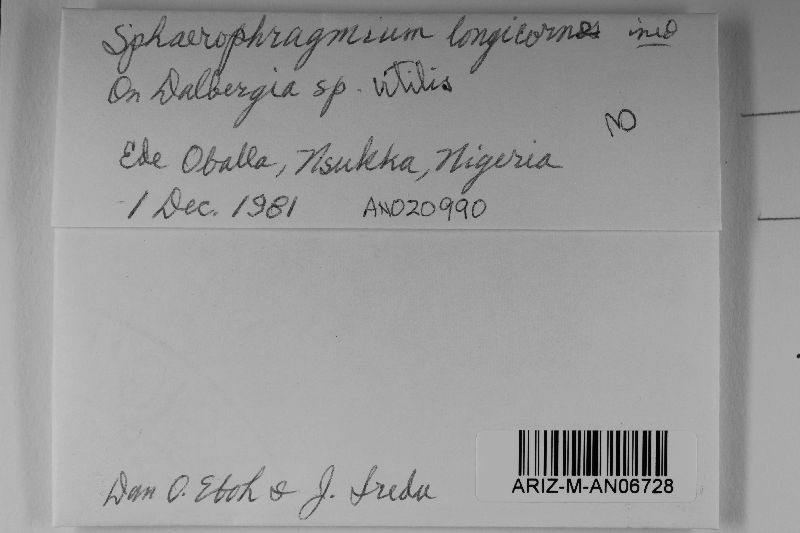 Sphaerophragmium longicornes ined
On Dalbergia sp. utilis
NO
Ede Oballa, Nsukka, Nigeria
1 Dec. 1981 AN020990
Dan O. Eboh & J.
ARIZ-M-AN06728